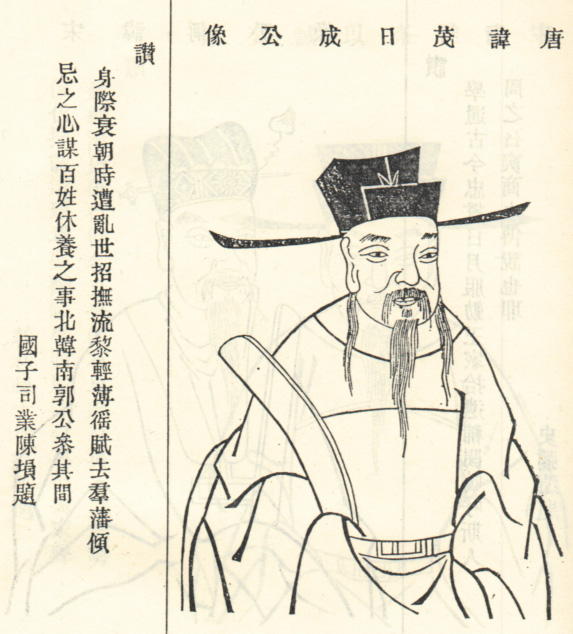 唐諱茂日成公像
讚
身際衰朝時遭亂世招撫流黎輕薄徭賦去羣藩傾
忌之心謀百姓休養之事北韓南郭公叅其間
國子司業陳塤題